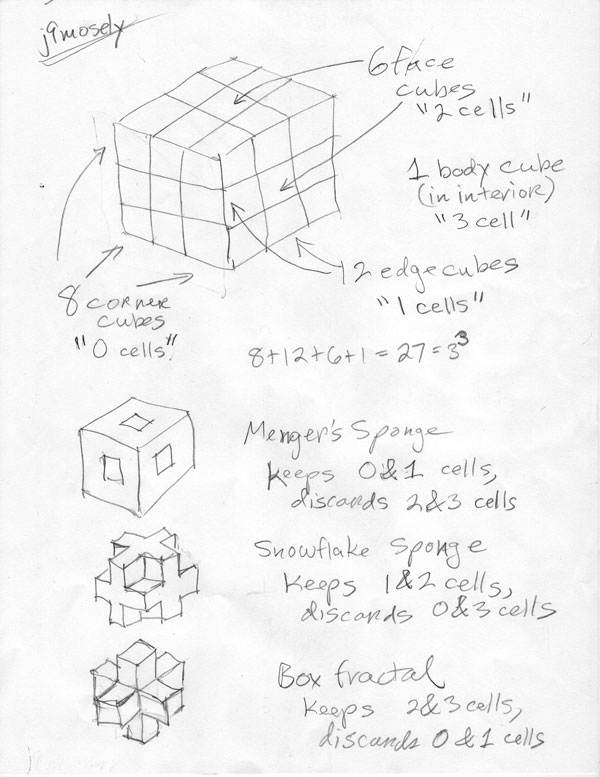 j9mosely
6 face
cubes
"2 cells"
1 body cube
(in interior)
"3 cell"
12 edge cubes
"1 cells"
8 corner
cubes
"0 cells"
8+12+6+1=27=3³
Menger's Sponge
keeps 0&1 cells,
discards 2&3 cells
Snowflake Sponge
keeps 1&2 cells,
discards 0&3 cells
Box fractal
keeps 2&3 cells,
discards 0&1 cells